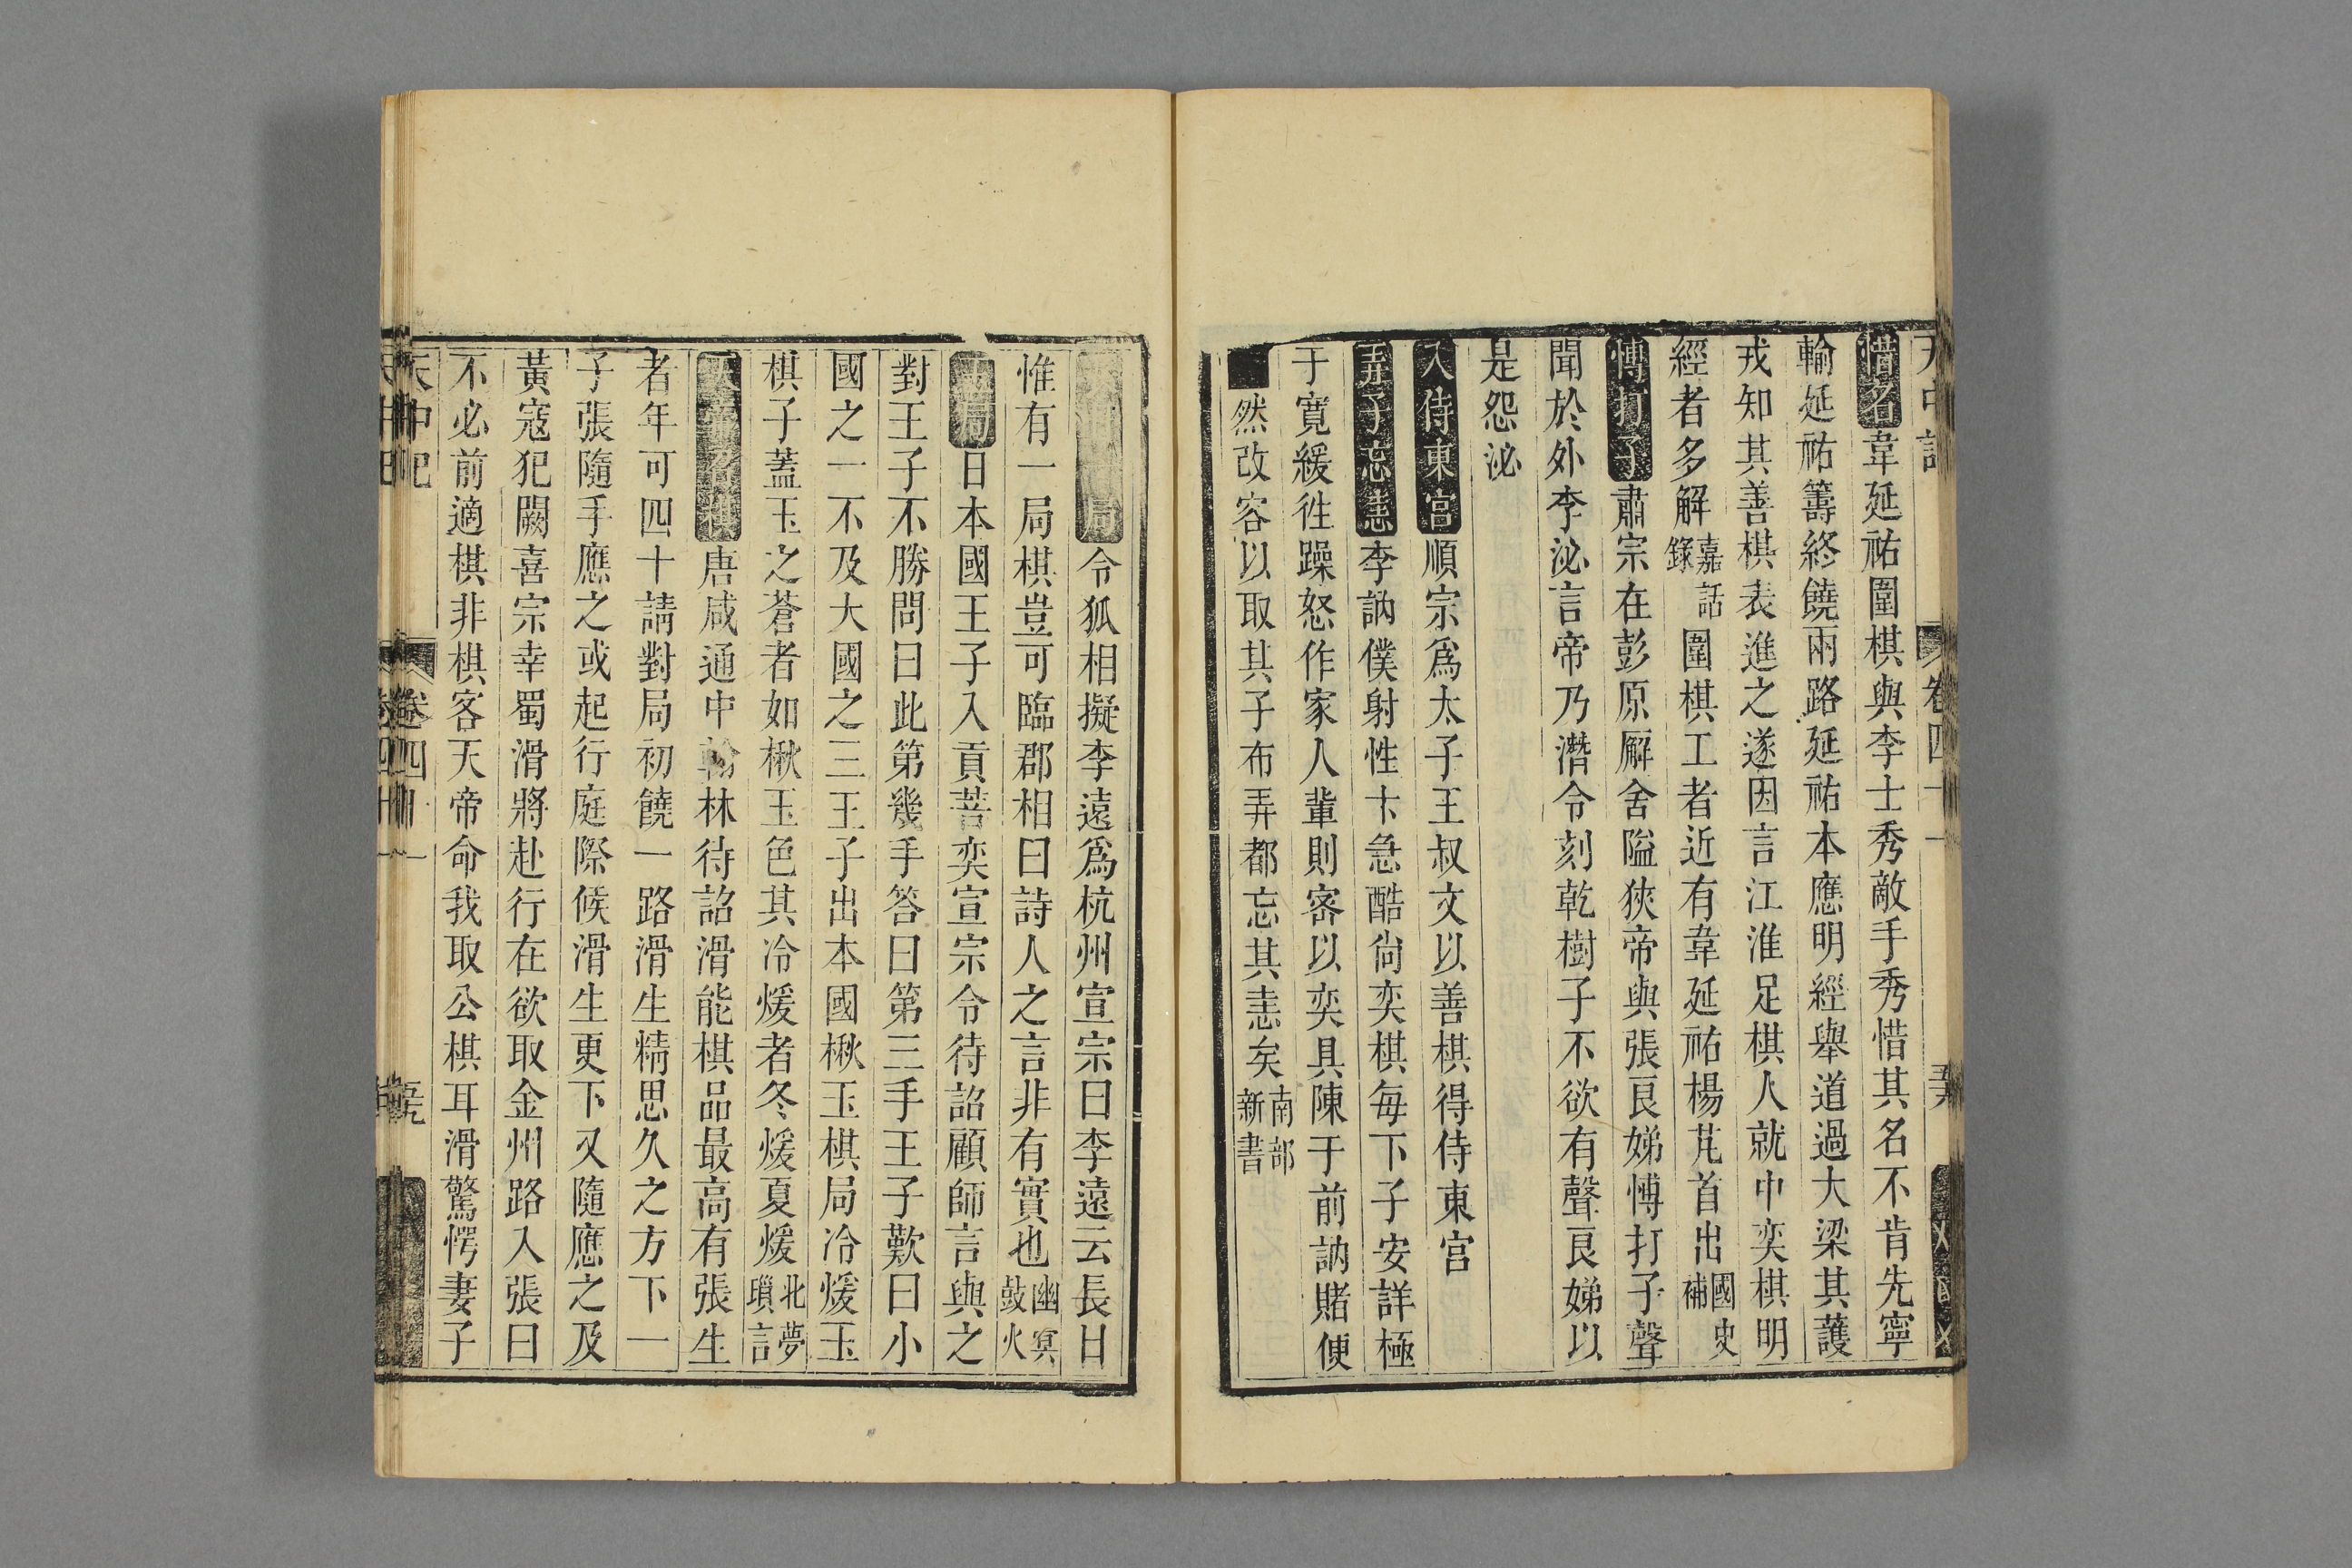 惜名韋延祐圍棋與李士秀敵手秀惜其名不肯先寧
輸延祐籌終饒兩路延祐本應明經舉道過大梁其護
戎知其善棋表進之遂因言江淮足棋人就中奕棋明
經者多解嘉話錄圍棋工者近有韋延祐楊芃首出國史補
愽打子肅宗在彭原廨舍隘狹帝與張良娣愽打子聲
聞於外李泌言帝乃潛令刻乾樹子不欲有聲良娣以
是怨泌
入侍東宮順宗爲太子王叔文以善棋得侍東宮
弄子忘恚李訥僕射性卞急酷尙奕棋每下子安詳極
于寛緩徃躁怒作家人輩則密以奕具陳于前訥賭便
然改容以取其子布弄都忘其恚矣南部新書
天中記
卷四十一
局令狐相擬李遠爲杭州宣宗曰李遠云長日
惟有一局棋豈可臨郡相曰詩人之言非有實也幽冥鼓火
局日本國王子入貢菩奕宣宗令待詔顧師言與之
對王子不勝問曰此第幾手答曰第三手王子歎曰小
國之一不及大國之三王子出本國楸玉棋局冷煖玉
棋子蓋玉之蒼者如楸玉色其冷煖者冬煖夏煖北夢瑣言
唐咸通中翰林待詔滑能棋品最高有張生
者年可四十請對局初饒一路滑生精思久之方下一
子張隨手應之或起行庭際候滑生更下又隨應之及
黃寇犯闕喜宗幸蜀滑將赴行在欲取金州路入張曰
不必前適棋非棋客天帝命我取公棋耳滑驚愕妻子
天中記
卷四